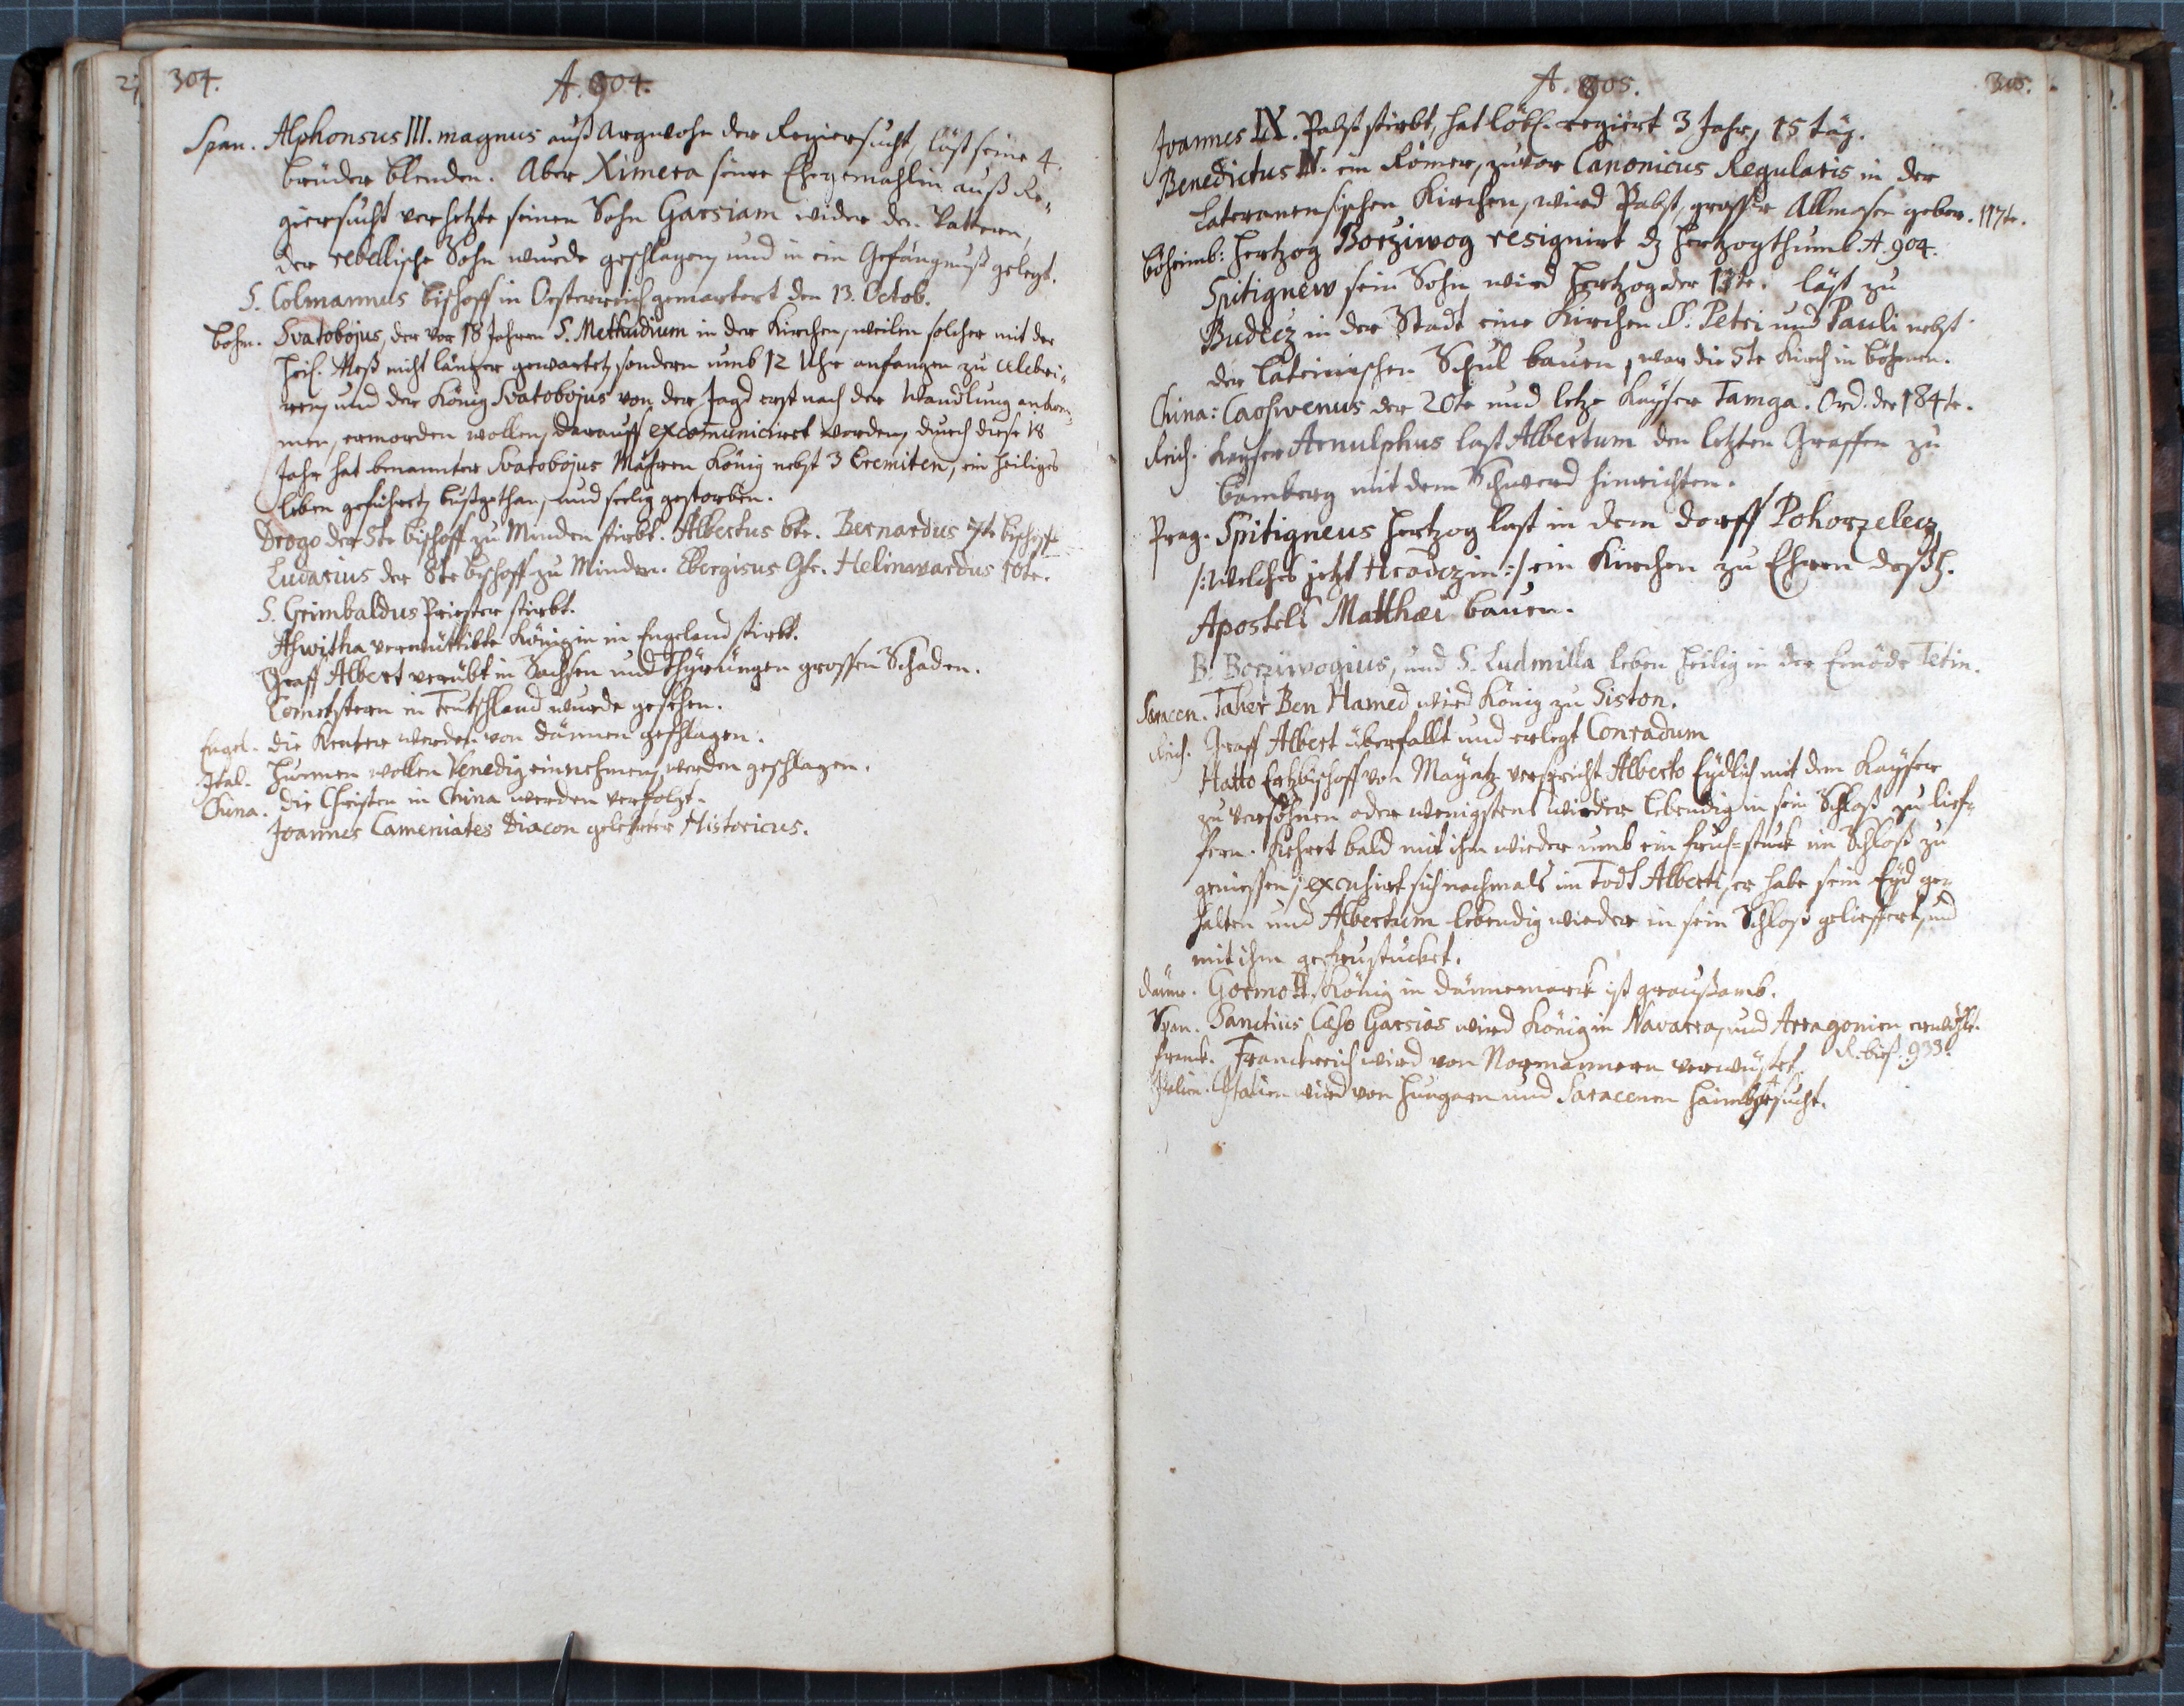 304.
A. 904.
Span. Alphonsus III. magnus auß Argwohn der Regiersucht, läst seine 4.
brüder blenden. Aber Ximera seine Ehegemahlin auß Re=
giersucht verhetzte seinen Sohn Garsiam wider den Vattern,
der rebellische Sohn wurde geschlagen, und in ein Gefängnuß gelegt.
S. Colmannus bischoff in Oesterreich gemartert den 13. Octob.
böhm. Svatobojus, der vor 18 Jahren S. Methudium in der Kirchen, weilen solcher mit der
heil. Meß nicht länger gewartet, sondern umb 12 Uhr anfangen zu celebri=
ren, und der König Svatobojus von der Jagd erst nach der Wandlung ankom=
men, ermorden wollen, darauff excom̄uniciret worden, durch diese 18
Jahr hat benannter Svatobojus Mähren König nebst 3 Eremiten, ein heiliges
leben geführet, bußgethan, und seelig gestorben.
Drogo der 5te bischoff zu Minden stirbt. Albertus 6te. Bernardus 7te bischoff
Ludarius der 8te bischoff zu Minden. Ebergisus 9te. Helinwardus 10te.
S. Grimbaldus Priester stirbt.
Ahwitha verwüttibte Königin in Engeland stirbt.
Graff Albert verübt in Sachsen und Thyrüngen grossen Schaden.
Cometstern in Teutschland wurde gesehen.
Engel. die Kenter werden von Dännen geschlagen.
Ital. Hunnen wollen Venedig einnehmen, werden geschlagen.
China. die Christen in China werden verfolgt.
Joannes Cameniates Diacon gelehrter Historicus.
305.
A. 905.
Joannes IX. Pabst stirbt, hat löbl. regiert 3 Jahr, 15 täg.
Benedictus IV. ein Römer, zuvor Canonicus Regularis in der
Lateranensischen Kirchen, wird Pabst, grosser Allmosen geber. 117te.
böheimb: Hertzog Borziwog resignirt dz Hertzogthumb A. 904.
Spitignew sein Sohn wird Hertzog der 13te. läst zu
Budecz in der Stadt eine Kirchen SS. Petri und Pauli nebst
der Lateinischen Schul bauen, war die 5te Kirch in böhmen.
China: Caoswenus der 20te und letze Kayser Tamga. Ord. der 184te.
Reich. Keyser Arnulphus last Albertum den letzten Graffen zu
bamberg mit dem Schwerd hinrichten.
Prag. Spitigneus Hertzog last in dem dorff Pohorzelecz
/: welches jetzt Hradczin :/ ein Kirchen zu Ehren deß H.
Apostels Matthæi bauen.
B. Borziwogius, und S. Ludmilla leben heilig in der Einöde Tetin.
Saracen. Taher Ben Hamed wird König zu Siston.
Reich. Graff Albert überfallt und erlegt Conradum
Hatto Ertzbischoff von Mayntz verspricht Alberto Eydlich mit dem Kayser
zu versöhnen oder wenigstens wieder lebendig in sein Schloß zu lief=
fern. Kehret bald mit ihm wieder umb ein fruh=stuck im Schloß zu
geniessen, excusirt sich nachmals im Todt Alberti, er habe sein Eyd ge=
halten und Albertum lebendig wieder in sein Schloß gelieffert, und
mit ihm gefrustucket.
dänn. Gormo II. König in Dännemarck ist graußamb.
Span. Sanctius Cæso Garsias wird König in Navarra, und Arragonien erwöhlt.
Franck. Franckreich wird von Normännern verwüstet. R. biß. 933.
Italien. Italien wird von Hungarn und Saracenen haimbgesucht.